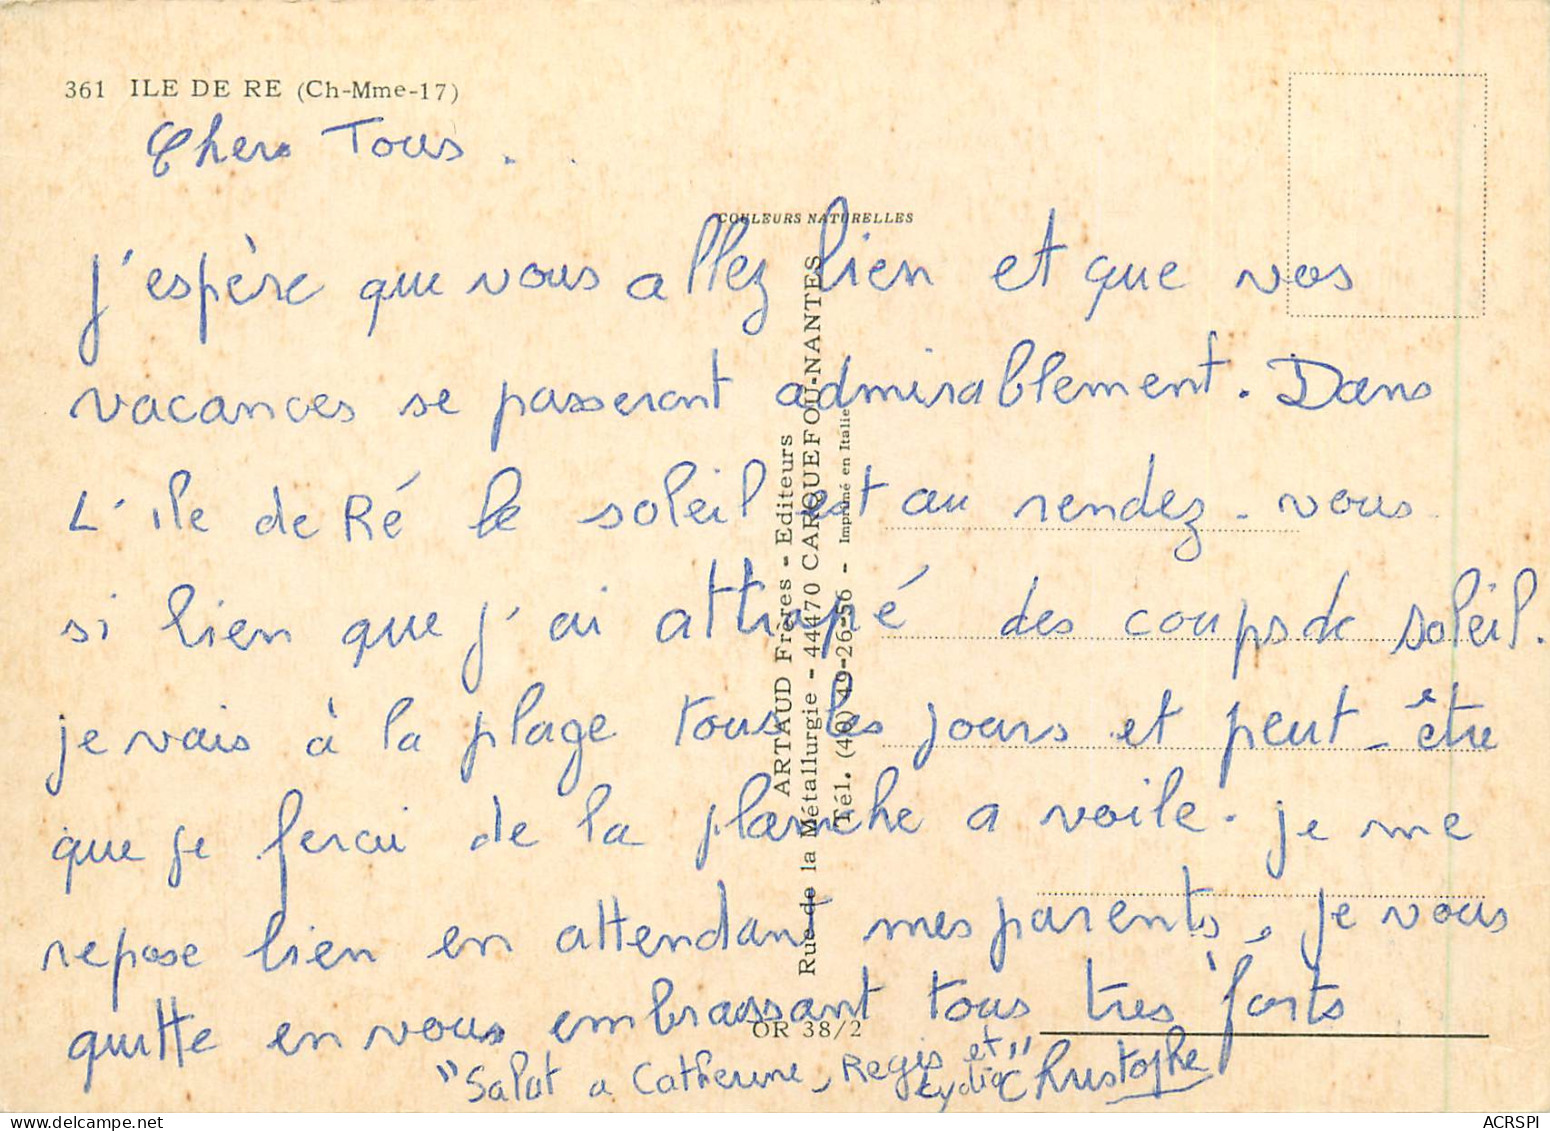 361 ILE DE RE (Ch-Mme-17)
Chers Tous.
COULEURS NATURELLES
J'espère que vous allez bien et que vos
vacances se passeront admirablement. Dans
L'ile de Ré le soleil est au rendez-vous
si bien que j'ai attrapé des coups de soleil.
je vais à la plage tous les jours et peut-être
que je ferai de la planche a voile. je me
repose bien en attendant mes parents, je vous
quitte en vous embrassant tous très forts
"Salut a Catherine, Regis et Lydia"
Christophe
ARTAUD Frères - Editeurs
Rue de la Métallurgie - 44470 CARQUEFOU-NANTES
Tél. (40) 49-26-56 - Imprimé en Italie
OR 38/2
ACRSPI